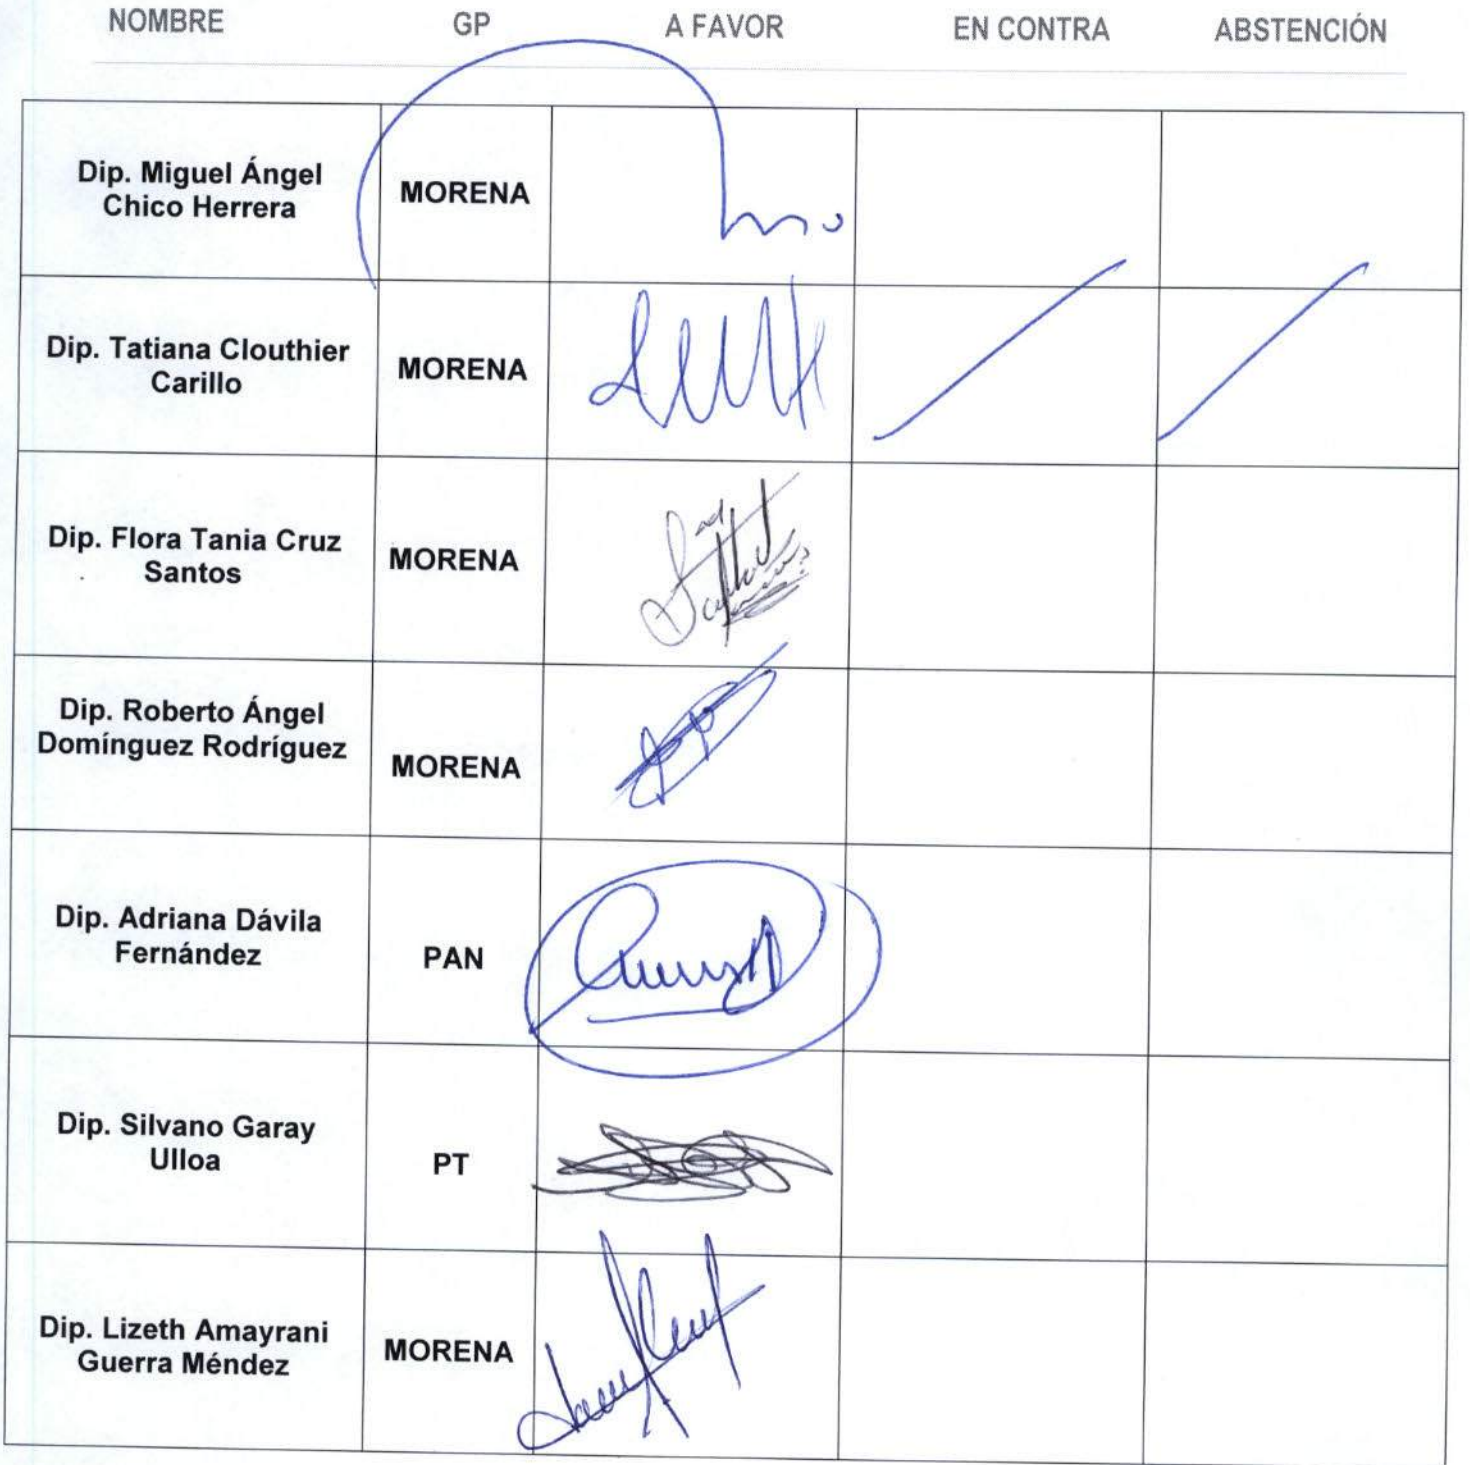 NOMBRE GP A FAVOR EN CONTRA ABSTENCIÓN
Dip. Miguel Ángel
Chico Herrera
MORENA
Dip. Tatiana Clouthier
Carillo
MORENA
Dip. Flora Tania Cruz
Santos
MORENA
Dip. Roberto Ángel
Domínguez Rodríguez
MORENA
Dip. Adriana Dávila
Fernández
PAN
Dip. Silvano Garay
Ulloa
PT
Dip. Lizeth Amayrani
Guerra Méndez
MORENA